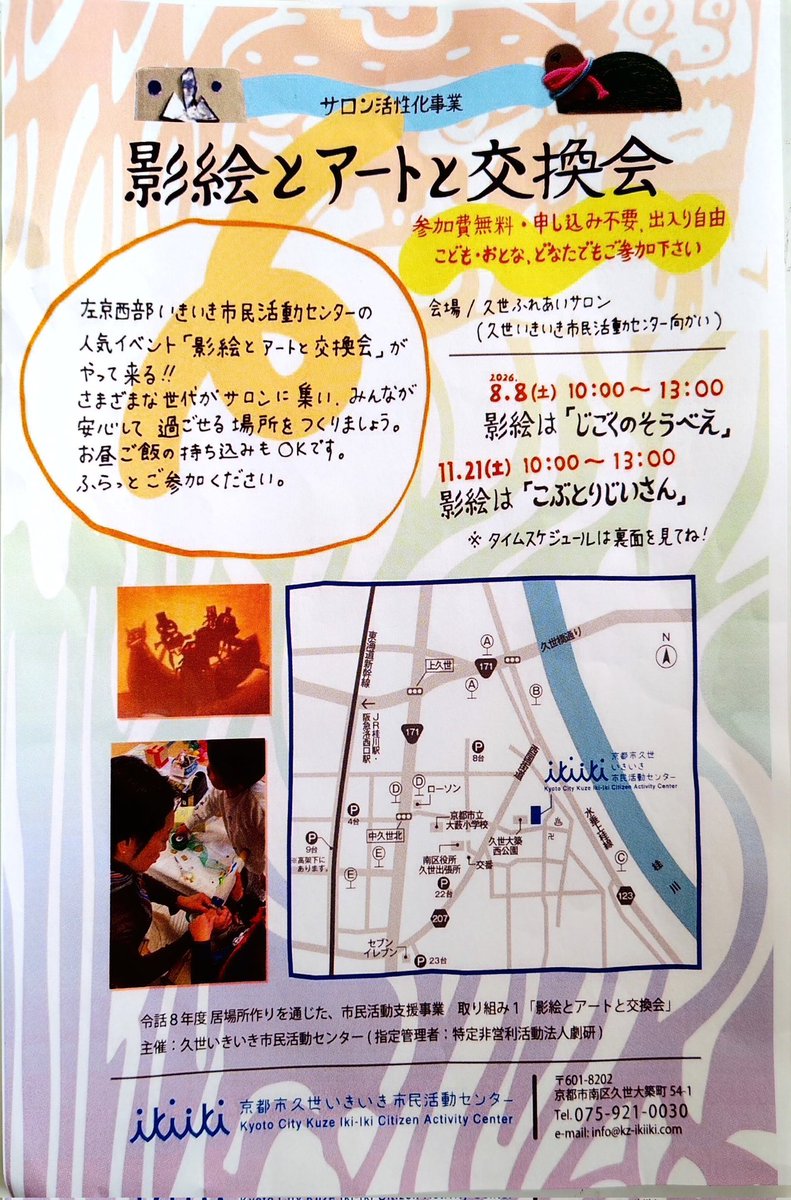 サロン活性化事業
影絵とアートと交換会
参加費無料・申し込み不要、出入り自由
こども・おとな、どなたでもご参加下さい
左京西部いきいき市民活動センターの
人気イベント「影絵とアートと交換会」が
やって来る!!
さまざまな世代がサロンに集い、みんなが
安心して過ごせる場所をつくりましょう。
お昼ご飯の持ち込みもOKです。
ふらっとご参加ください。
会場/久世ふれあいサロン
(久世いきいき市民活動センター向かい)
2026.
8.8(土) 10:00〜13:00
影絵は「じごくのそうべえ」
11.21(土) 10:00〜13:00
影絵は「こぶとりじいさん」
※タイムスケジュールは裏面を見てね!
東海道新幹線
←JR桂川駅・
阪急洛西口駅
上久世
171
久世橋通り
N
A
A
B
171
P
8台
ikiiki
京都市久世
いきいき
市民活動センター
Kyoto City Kuze Iki-Iki Citizen Activity Center
D
D
ローソン
P
4台
京都市立
大藪小学校
P
9台
※高架下に
あります。
中久世北
E
E
久世大築
西公園
卍
南区役所
久世出張所
交番
P
22台
C
桂川
123
207
セブン
イレブン
P 23台
令話8年度 居場所作りを通じた、市民活動支援事業 取り組み1「影絵とアートと交換会」
主催:久世いきいき市民活動センター(指定管理者:特定非営利活動法人劇研)
ikiiki
京都市久世いきいき市民活動センター
Kyoto City Kuze Iki-Iki Citizen Activity Center
〒601-8202
京都市南区久世大築町54-1
Tel. 075-921-0030
e-mail: info@kz-ikiiki.com
Kyoto City Kuze Iki-Iki Citizen Activity Center